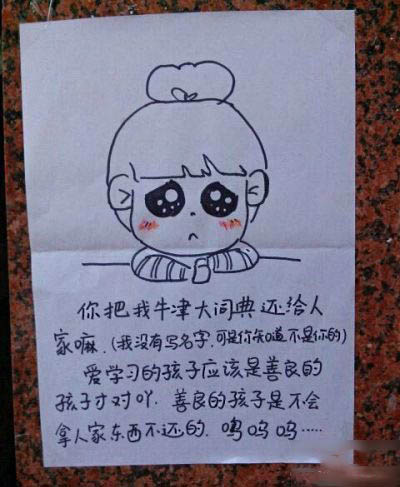 你把我牛津大词典还给人
家嘛.(我没有写名字,可是你知道不是你的)
爱学习的孩子应该是善良的
孩子才对吖.善良的孩子是不会
拿人家东西不还的.呜呜呜……